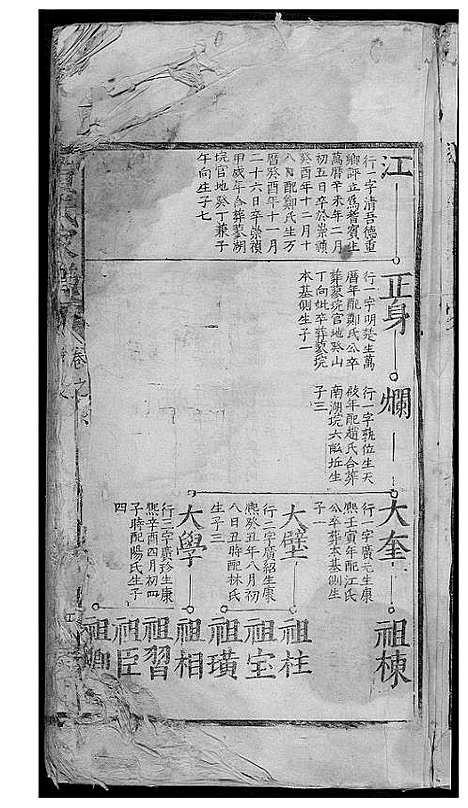 江
行一字清吾德重
鄉評立為耆賓生
萬曆辛未年二月
初五日卒於崇禎
癸酉年十二月十
八日配鄭氏生万
曆癸酉年十一月
二十六日卒崇禎
甲戌年合葬蒙湖
垸官地癸丁兼子
午向生子七
正身
行一字明楚生萬
曆年配鄭氏公卒
葬蒙垸官地癸山
丁向妣卒葬蒙垸
本基側生子一
爛
行一字執位生天
啟年配趙氏合葬
南湖垸六畝坵生
子三
大奎
行一字廣元生康
熙壬寅年配江氏
公卒葬本基側生
子一
大壁
行二字廣紹生康
熙癸丑年八月初
八日丑時配林氏
生子三
大學
行三字廣珍生康
熙辛酉四月初四
子時配陽氏生子
四
祖棟
祖柱
祖宝
祖璜
祖相
祖習
祖臣
祖卿